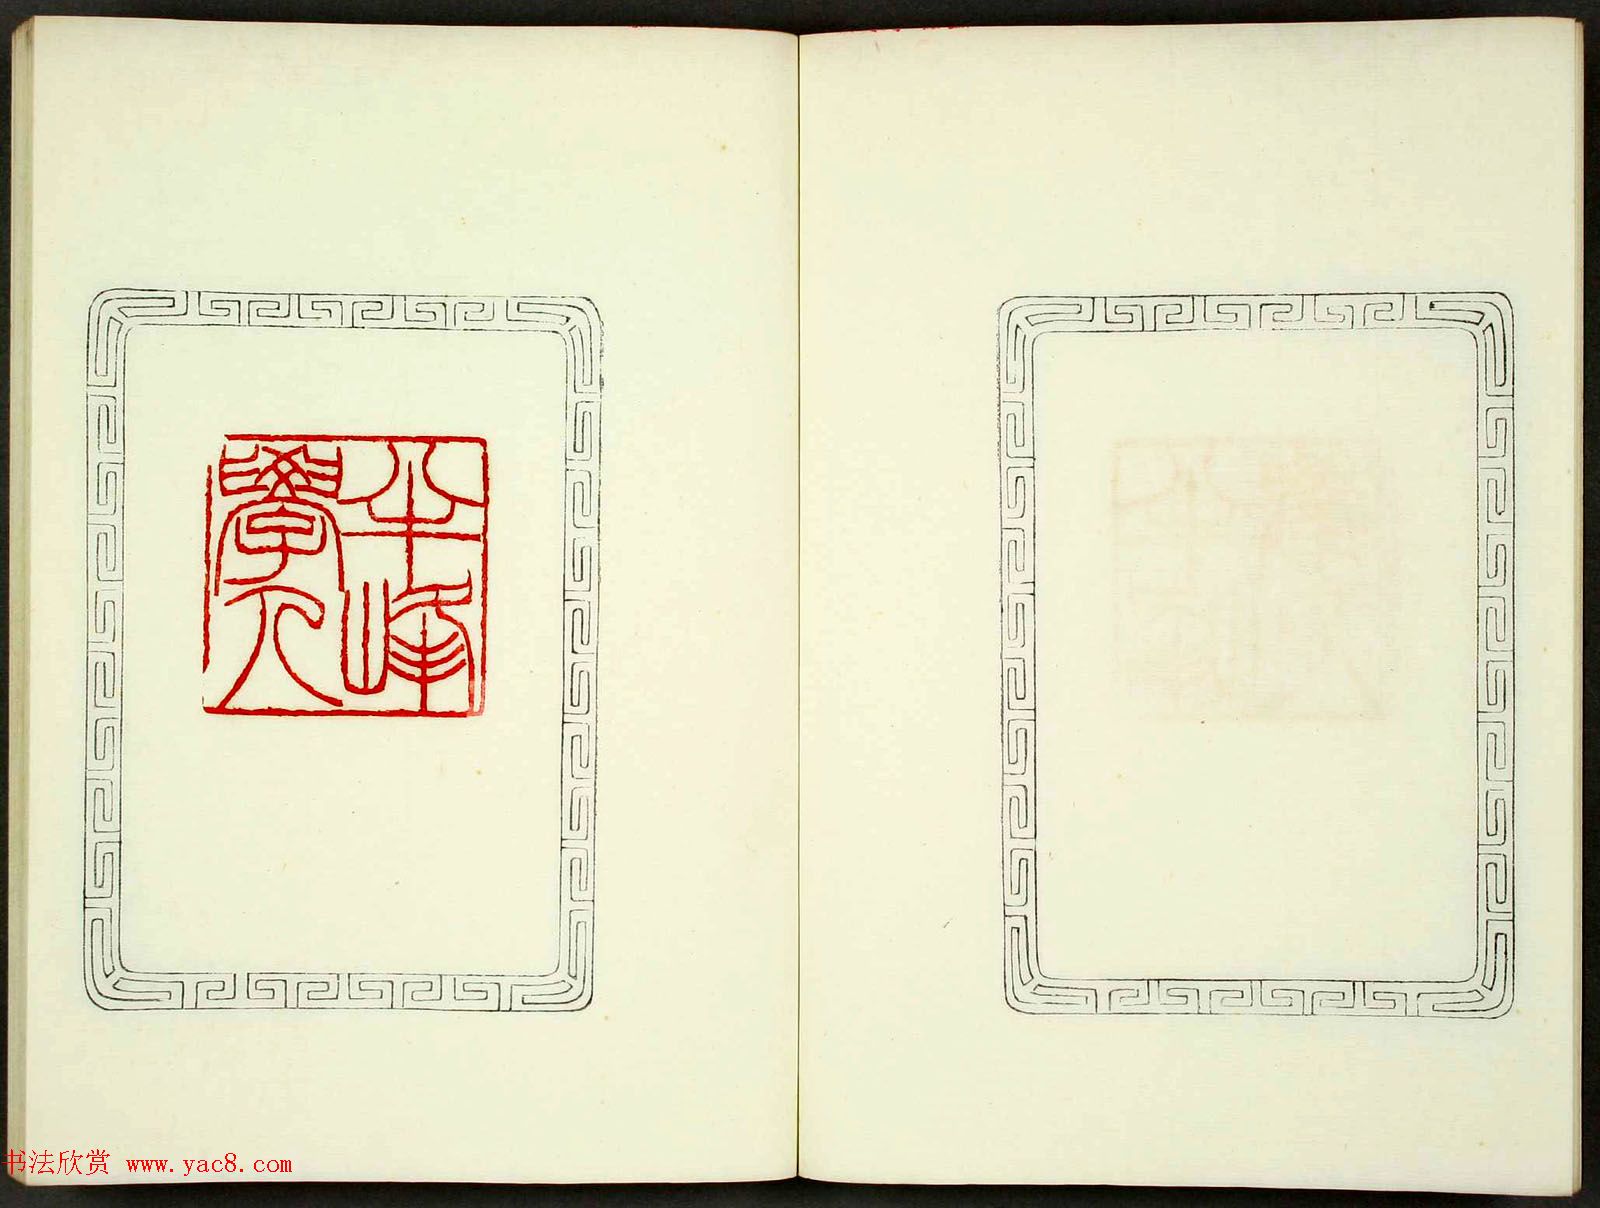 半峰
學人
书法欣赏 www.yac8.com